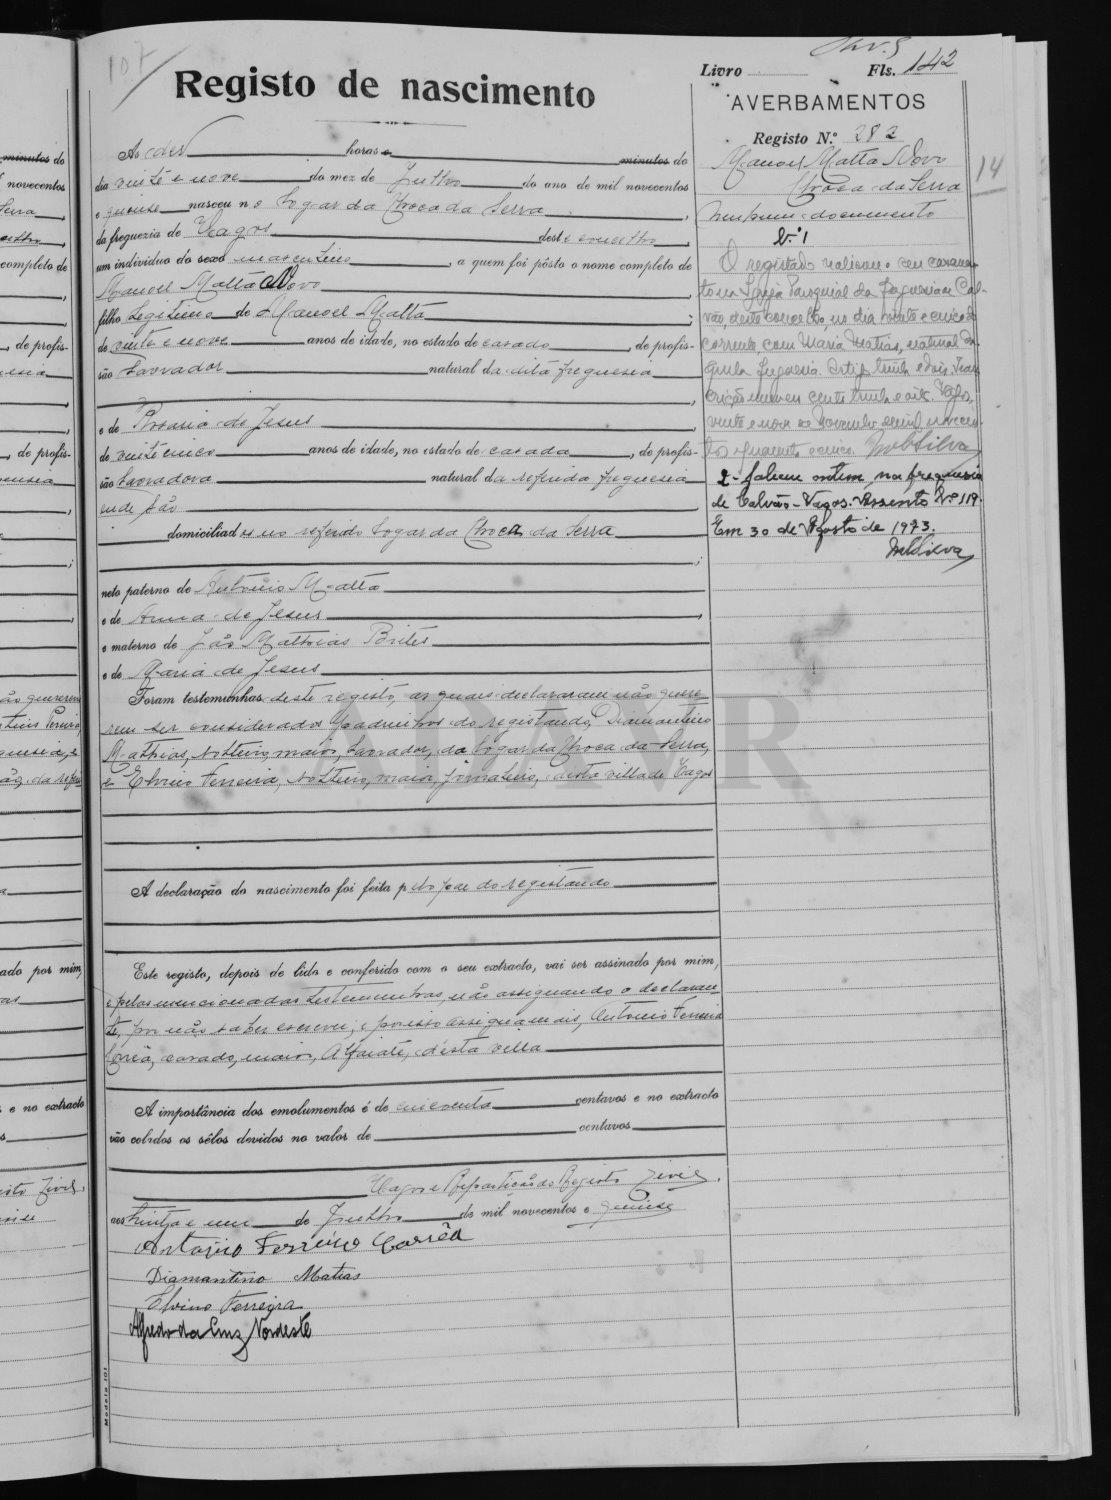 107
Registo de nascimento
Ás dez horas e minutos do
dia vinte e nove do mez de Julho do ano de mil novecentos
e quinze nasceu no logar da Choca da Serra,
da freguezia de Vagos deste concelho,
um individuo do sexo masculino, a quem foi pôsto o nome completo de
Manoel Matta Novo,
filho legitimo de Manoel Matta;
de vinte e nove anos de idade, no estado de casado, de profis-
são lavrador natural da dita freguesia
,
e de Rosaria de Jesus,
de vinte cinco anos de idade, no estado de casada, de profis-
são lavradora natural da referida freguesia
onde são
domiciliados no referido logar da Choca da Serra
;
neto paterno de Antonio Matta
e de Anna de Jesus,
e materno de João Mathias Brites
e de Maria de Jesus
Foram testemunhas deste registo, as quais declararam não quere-
rem ser considerados padrinhos do registando, Diamantino
Mathias, solteiro, maior, lavrador, do logar da Choca da Serra,
e Elvino Ferreira, solteiro, maior, jornaleiro, desta villa de Vagos
A declaração do nascimento foi feita pelo pae do registando
Este registo, depois de lido e conferido com o seu extracto, vai ser assinado por mim,
e pelas mencionadas testemunhas, não assignando o declaran-
te, por não saber escrever, e por isso assigna mais, Antonio Ferreira
Corrêa, casado, maior, Alfaiate, desta villa
A importância dos emolumentos é de cincoenta centavos e no extracto
vão colados os sêlos devidos no valor de centavos
Vagos e Repartição do Registo Civil,
aos trinta e um de Julho de mil novecentos e quinze
Antonio Ferreira Corrêa
Diamantino Matias
Elvino Ferreira
Alfredo da Cruz Nordeste
Modelo 101
Livro Fls. 142
AVERBAMENTOS
Registo N.º 282
Manoel Matta Novo
Choca da Serra
14
Nenhum documento
N.º 1
O registado realisou o seu casamen-
to na Igreja Paroquial da freguesia de Cal-
vão, deste concelho, no dia vinte e cinco do
corrente, com Maria Matias, natural da-
quela freguesia. Artigo trinta e dois. Trans-
crição numero cento trinta e oito. Vagos,
vinte e nove de Novembro de mil novecen-
tos quarenta e cinco. MSilva
2 - faleceu ontem, na freguesia
de Calvão - Vagos. Assento Nº 119.
Em 30 de Agosto de 1973.
MSilva
minutos do
novecentos
Serra,
completo de
, de profis-
, de profis-
ado por mim,
e no extracto
ADAVR